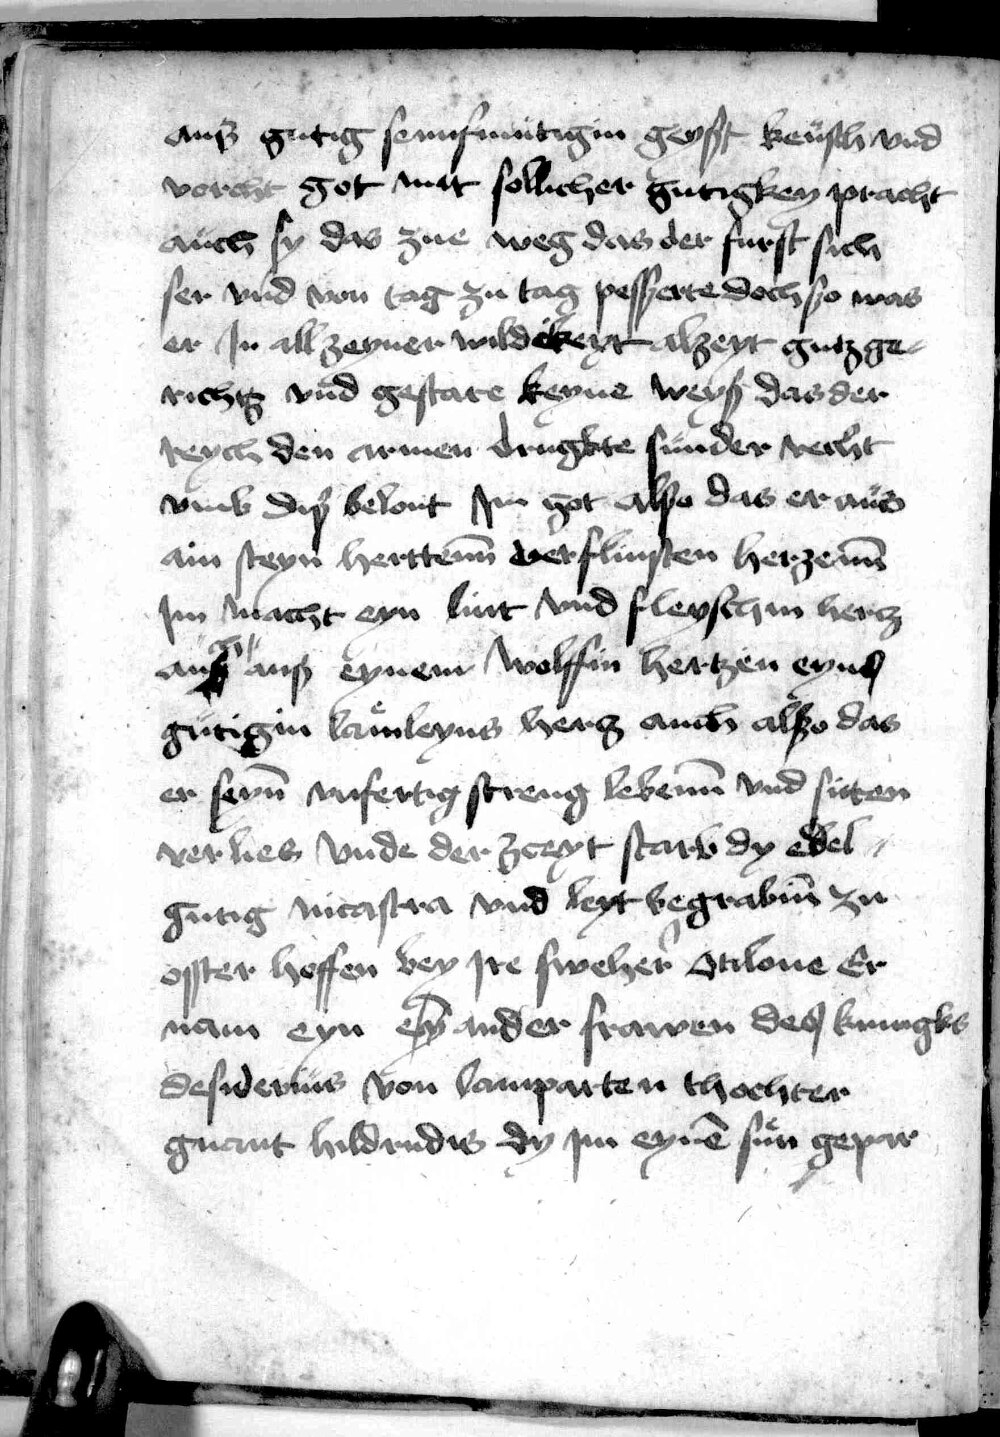 auß gutig sennfmutigin geyst keüsch vnd
vorcht got mit sollicher gutigkey pracht
auch sy das zue weg das der furst sich
ser vnd von tag zu tag pesserte doch so was
er In all zeyner wildikeyt alzeyt gutz ge-
richtz vnd gestate keyne weyß das der
reych den armen drugkte sunder recht
vmb diß belont Im got also das er aus
ain steyn herttenn verflinsten herzenn
Im macht eyn lint vnd fleyschin hertz
auch auß eynem wolffin hertzen eyns
gütigin lamleyns hertz auch also das
er seyn vnfertig streng lebenn vnd sitten
verlies vnde der zceyt starb dy edel
gutig nicastra vnd leyt begrabin zu
osster hoffen bey Ire sweher Otilone Er
nam eyn ander frawen des kunigks
desiderius von lamparten thochter
gnant hildrudis dy Im eynē sun gepar